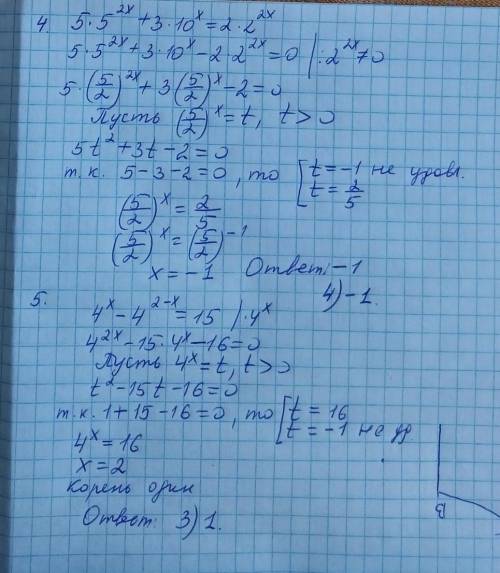 4. 5·5^{2x} + 3·10^x = 2·2^{2x}
5·5^{2x} + 3·10^x − 2·2^{2x} = 0 | : 2^{2x} ≠ 0
5·(5/2)^{2x} + 3(5/2)^x − 2 = 0
Пусть (5/2)^x = t, t > 0
5t² + 3t − 2 = 0
т.к. 5 − 3 − 2 = 0, то [ t = −1 не удовл.
t = 2/5
(5/2)^x = 2/5
(5/2)^x = (5/2)^{−1}
x = −1 Ответ: −1
4) −1.
5. 4^x − 4^{2−x} = 15 | · 4^x
4^{2x} − 15·4^x − 16 = 0
Пусть 4^x = t, t > 0
t² − 15t − 16 = 0
т.к. 1 + 15 − 16 = 0, то [ t = 16
t = −1 не уд.
4^x = 16
x = 2
Корень один
Ответ: 3) 1.
В